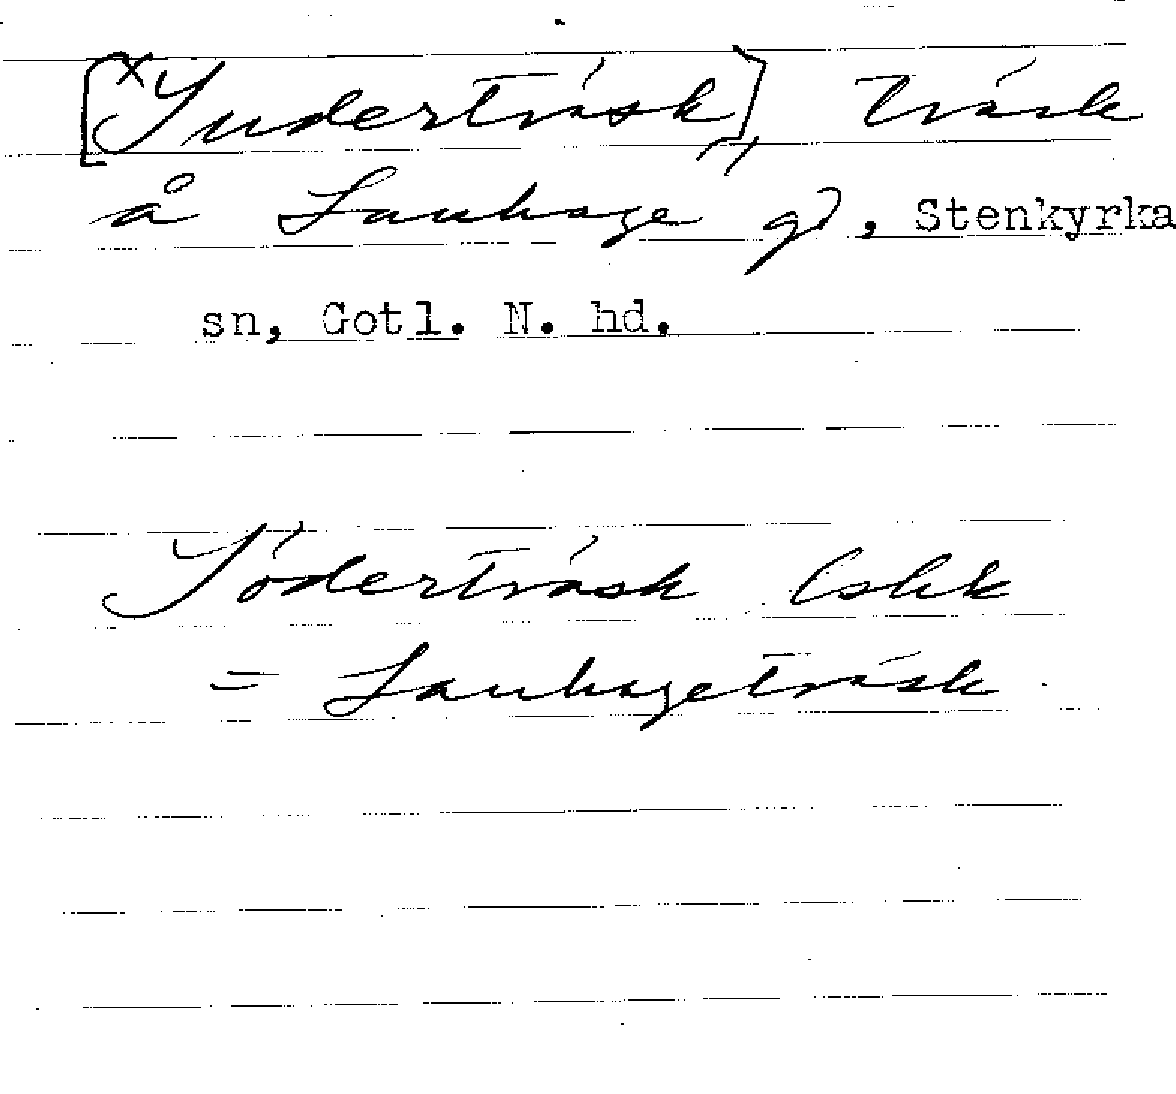 [×Suderträsk] träsk
å Lauhage gd, Stenkyrka
sn, Gotl. N. hd.
Söderträsk
= Lauhageträsk